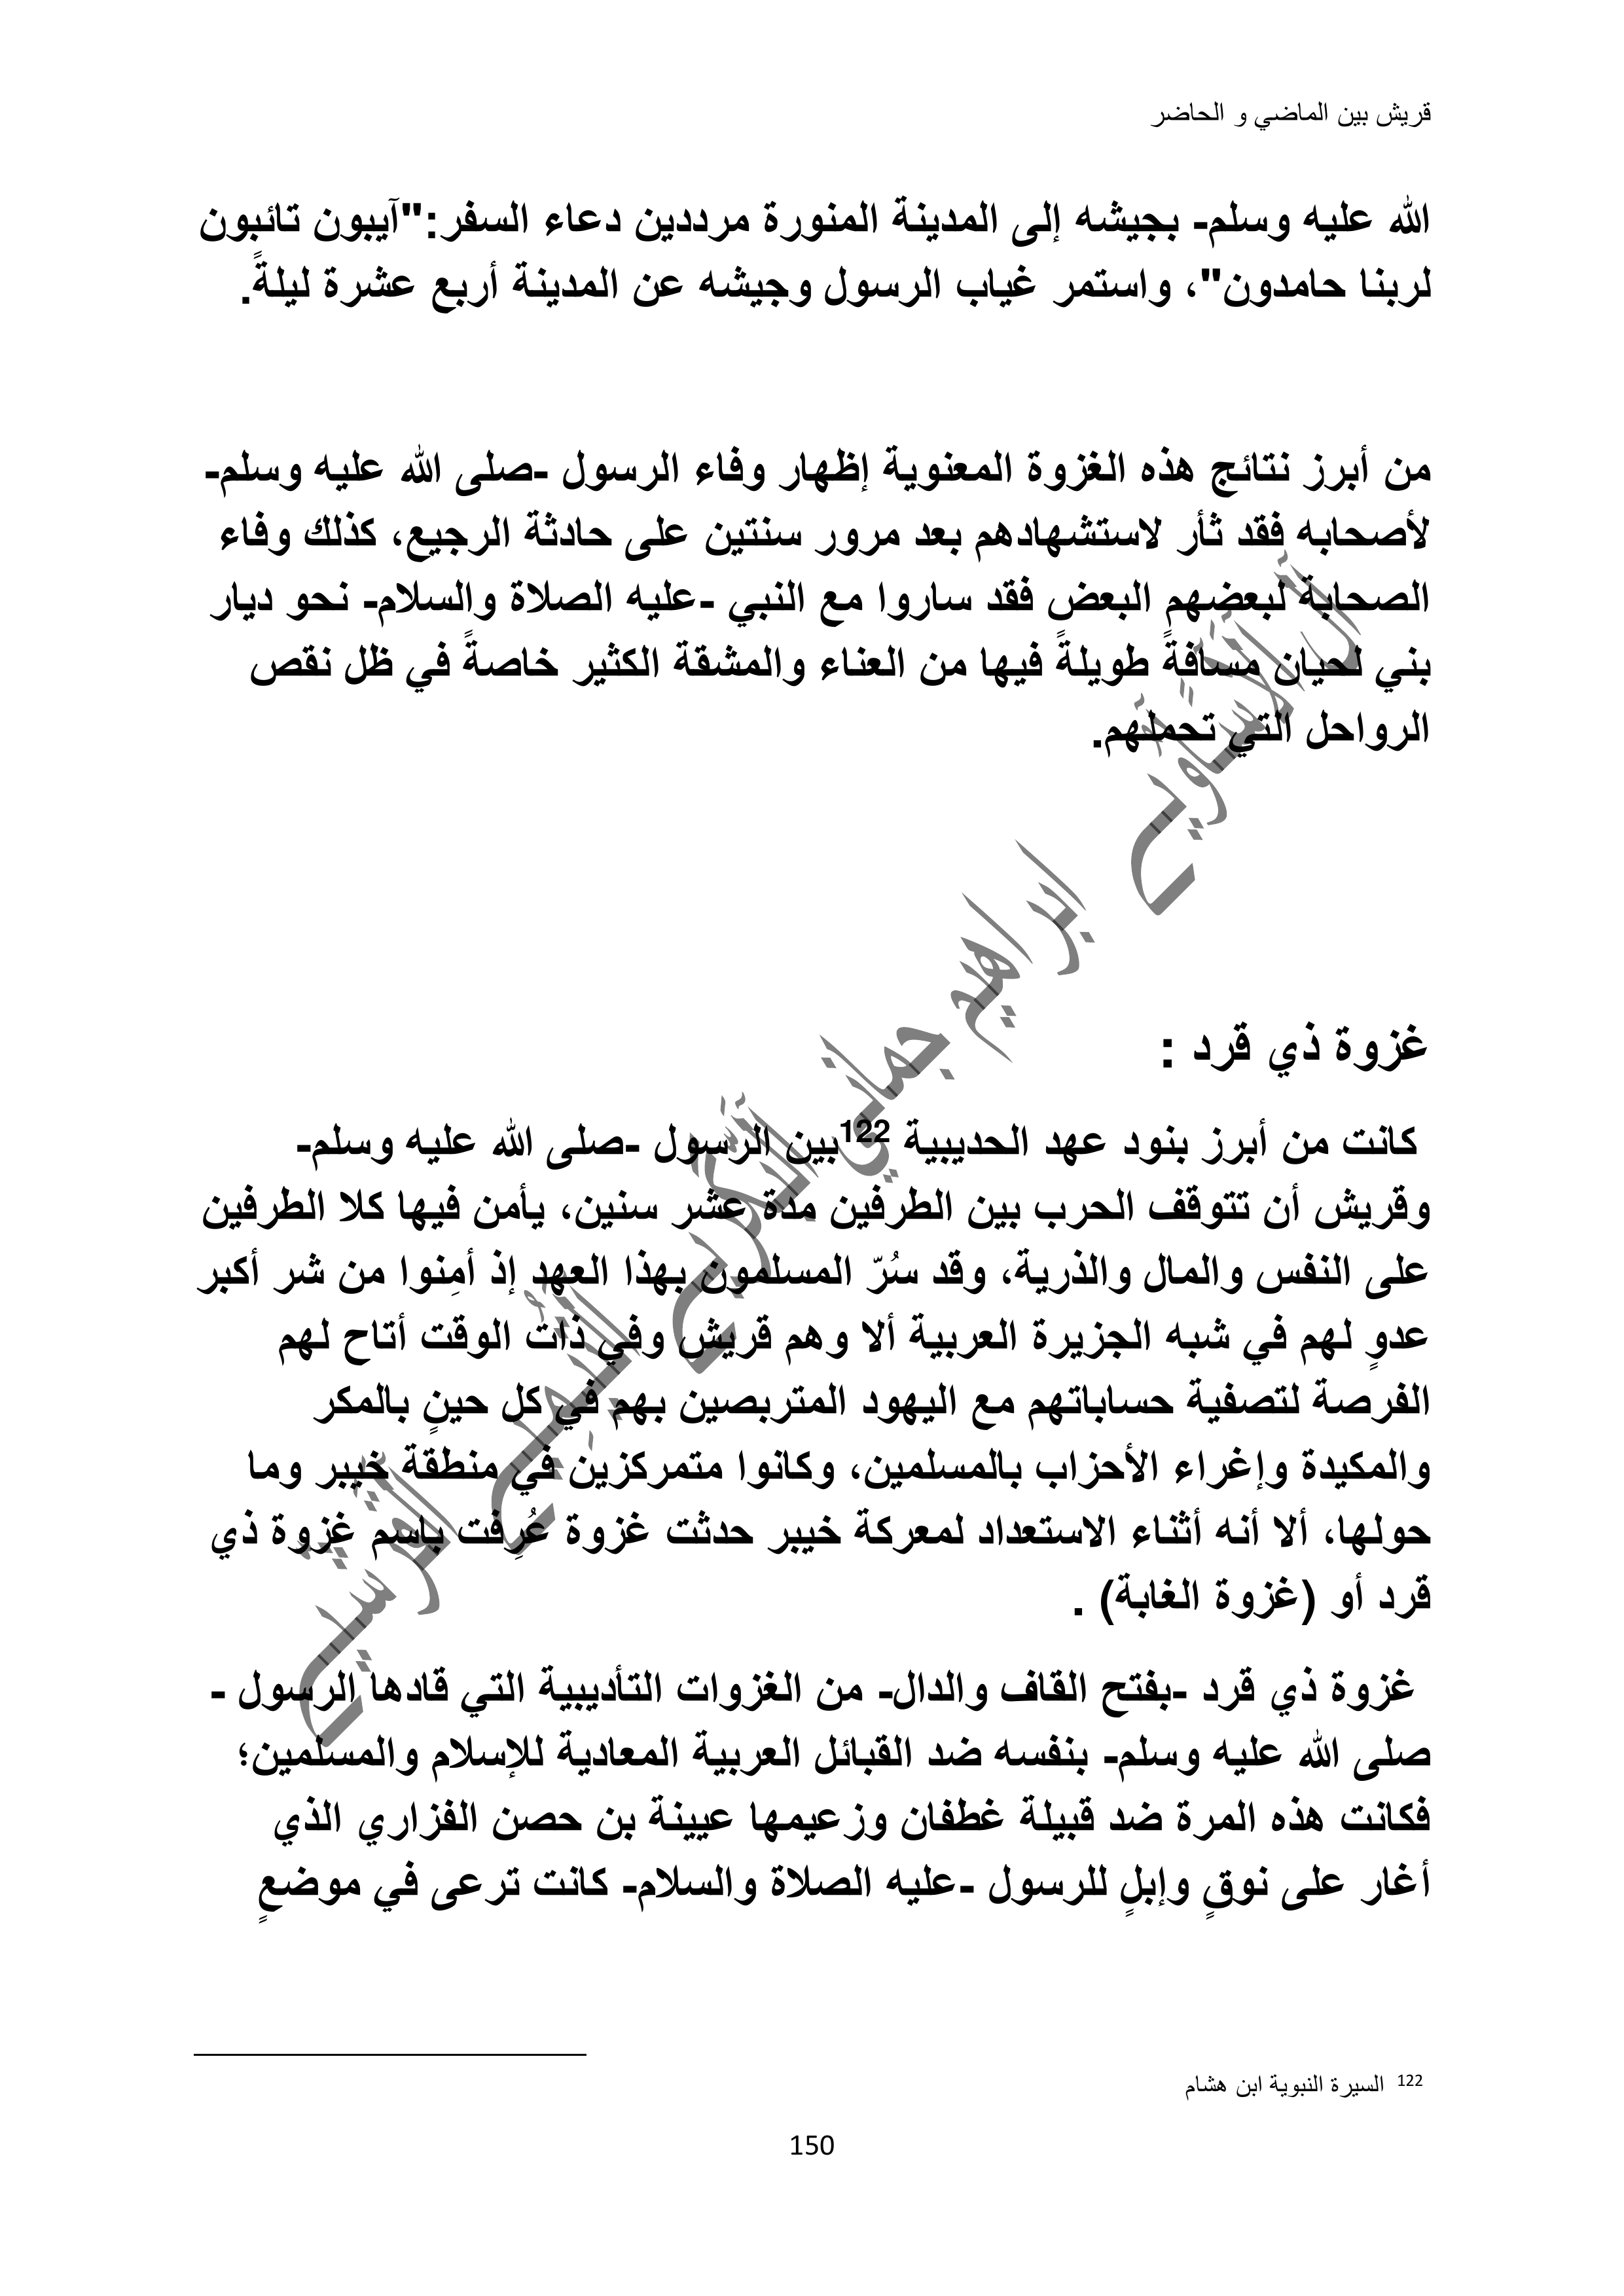 قريش بين الماضي و الحاضر
الله عليه وسلم- بجيشه إلى المدينة المنورة مرددين دعاء السفر:"آيبون تائبون
لربنا حامدون"، واستمر غياب الرسول وجيشه عن المدينة أربع عشرة ليلةً.
من أبرز نتائج هذه الغزوة المعنوية إظهار وفاء الرسول -صلى الله عليه وسلم-
لأصحابه فقد ثأر لاستشهادهم بعد مرور سنتين على حادثة الرجيع، كذلك وفاء
الصحابة لبعضهم البعض فقد ساروا مع النبي -عليه الصلاة والسلام- نحو ديار
بني لحيان مسافةً طويلةً فيها من العناء والمشقة الكثير خاصةً في ظل نقص
الرواحل التي تحملهم.
غزوة ذي قرد :
كانت من أبرز بنود عهد الحديبية 122بين الرسول -صلى الله عليه وسلم-
وقريش أن تتوقف الحرب بين الطرفين مدة عشر سنين، يأمن فيها كلا الطرفين
على النفس والمال والذرية، وقد سُرّ المسلمون بهذا العهد إذ أمِنوا من شر أكبر
عدوٍ لهم في شبه الجزيرة العربية ألا وهم قريش وفي ذات الوقت أتاح لهم
الفرصة لتصفية حساباتهم مع اليهود المتربصين بهم في كل حينٍ بالمكر
والمكيدة وإغراء الأحزاب بالمسلمين، وكانوا متمركزين في منطقة خيبر وما
حولها، ألا أنه أثناء الاستعداد لمعركة خيبر حدثت غزوة عُرِفت باسم غزوة ذي
قرد أو (غزوة الغابة) .
غزوة ذي قرد -بفتح القاف والدال- من الغزوات التأديبية التي قادها الرسول -
صلى الله عليه وسلم- بنفسه ضد القبائل العربية المعادية للإسلام والمسلمين؛
فكانت هذه المرة ضد قبيلة غطفان وزعيمها عيينة بن حصن الفزاري الذي
أغار على نوقٍ وإبلٍ للرسول -عليه الصلاة والسلام- كانت ترعى في موضعٍ
122 السيرة النبوية ابن هشام
150